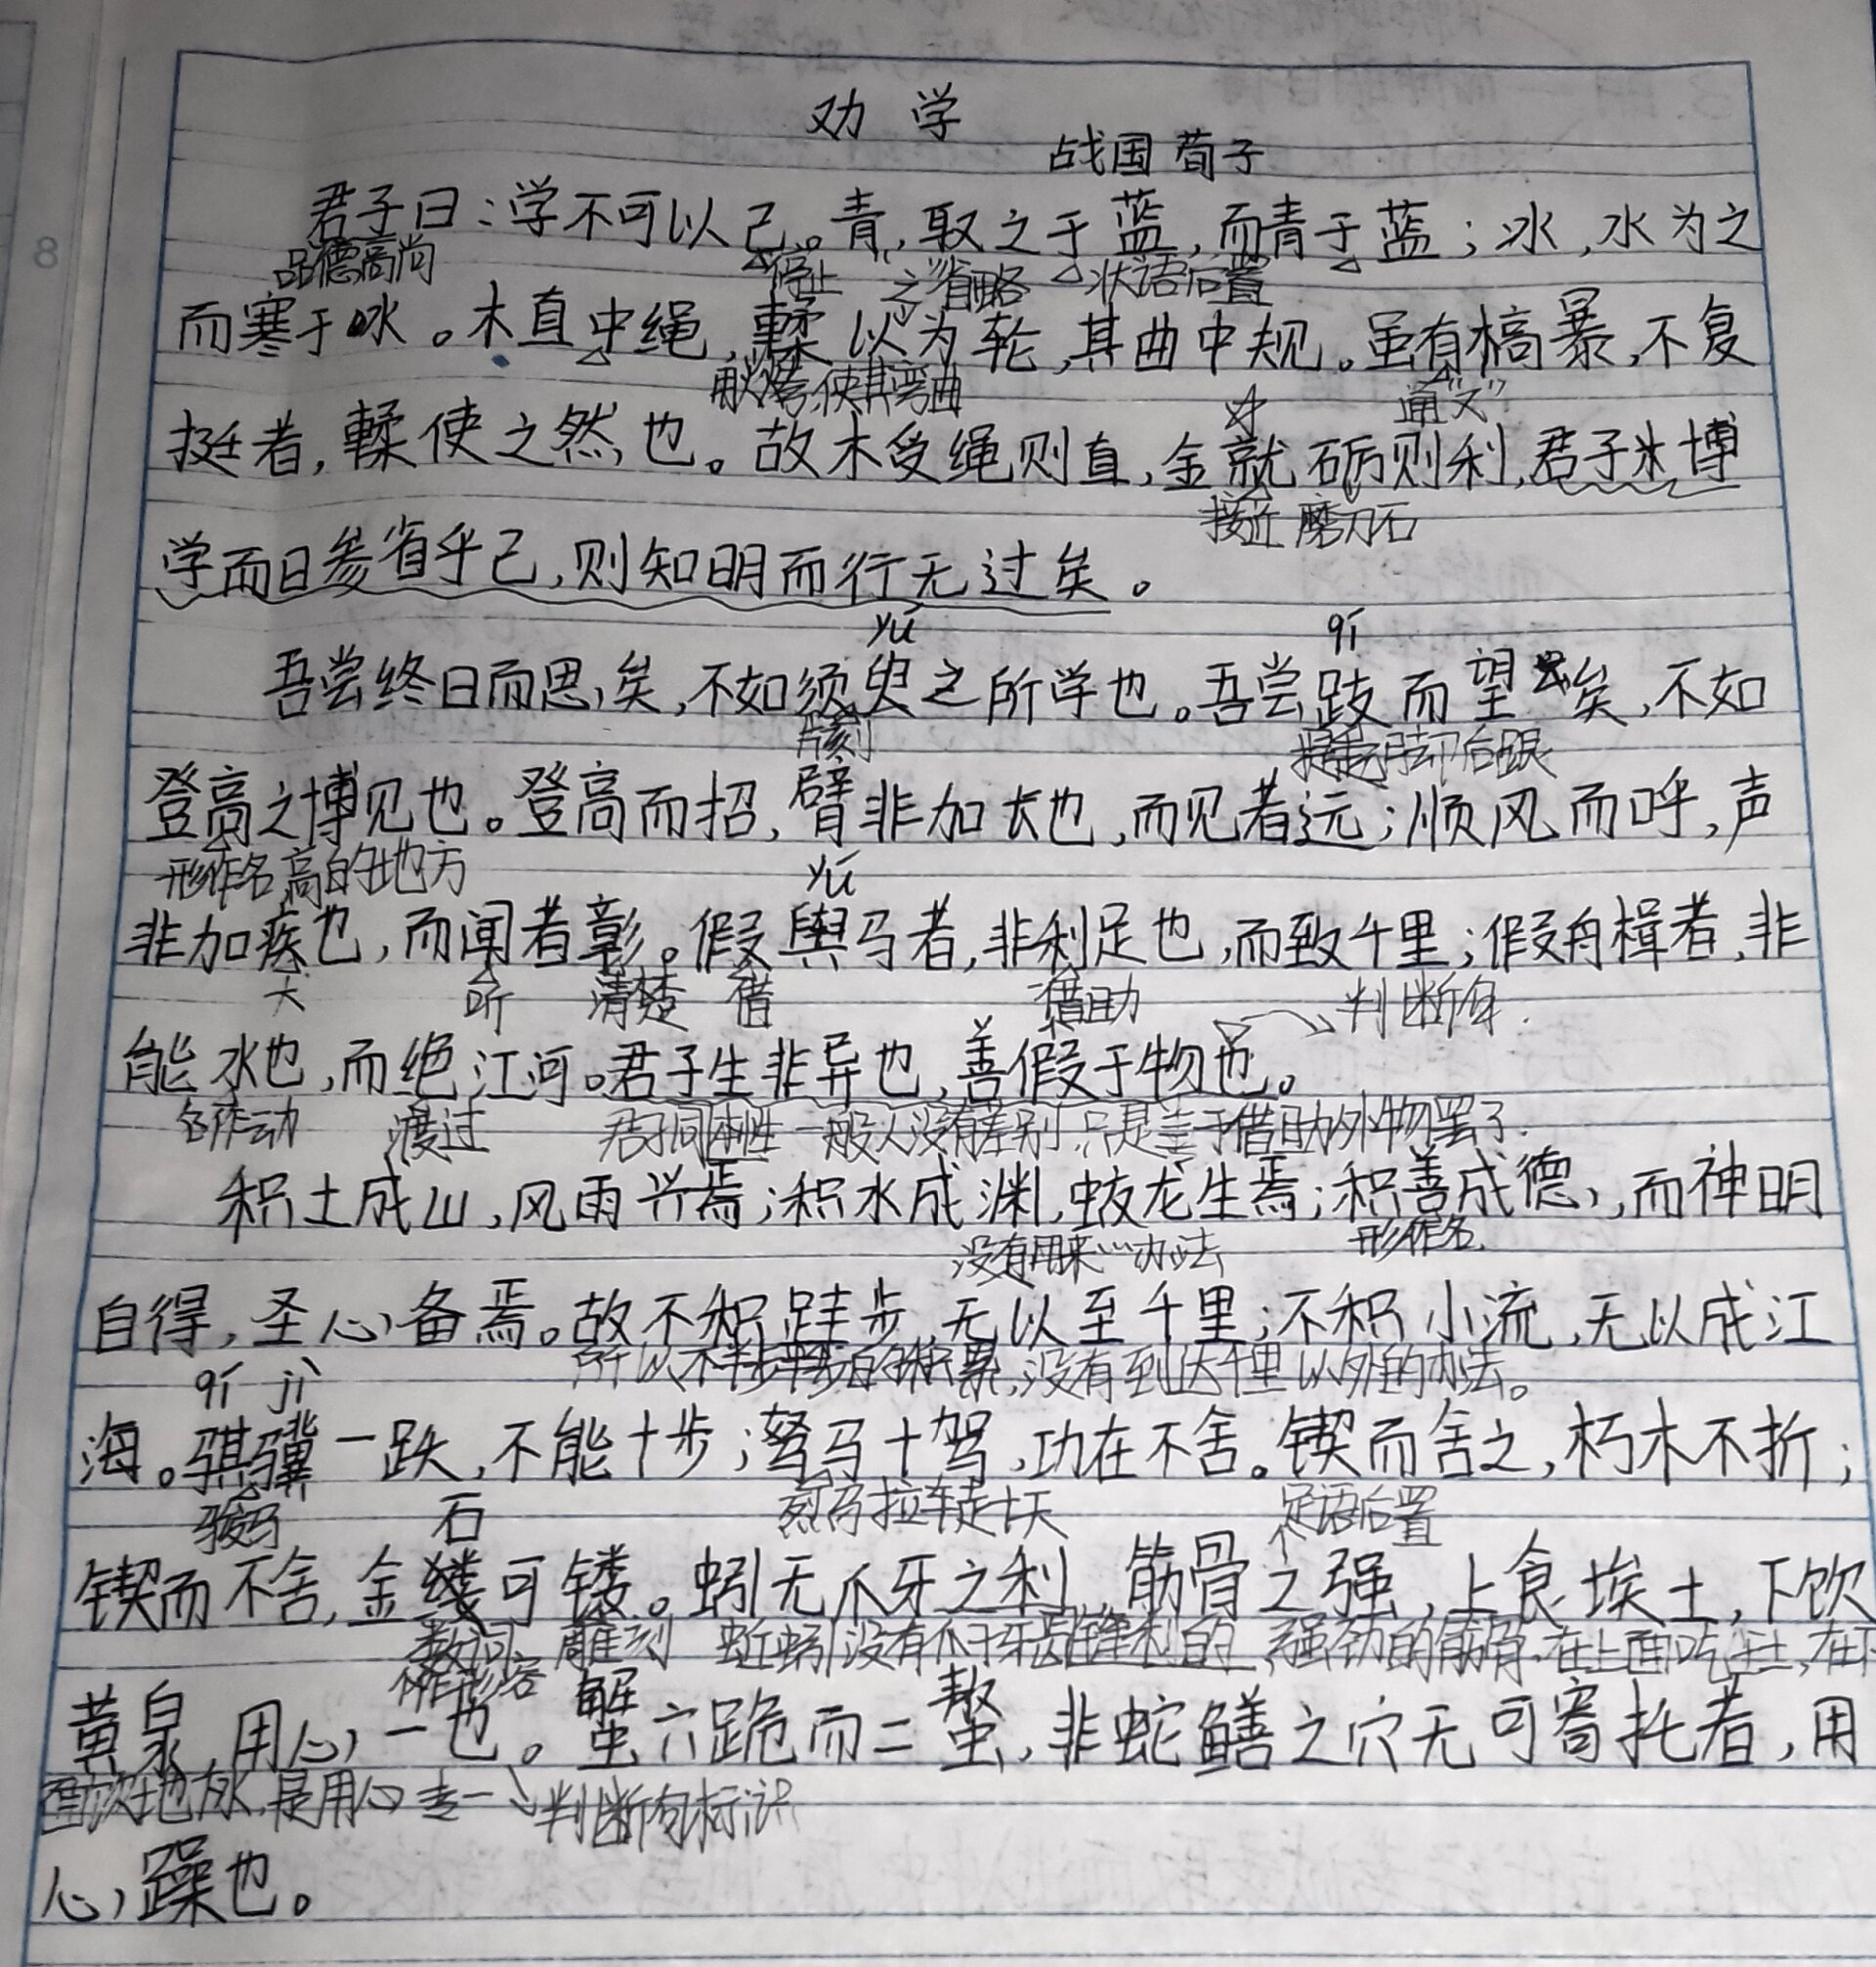 劝学
战国 荀子
君子曰：学不可以己。青，取之于蓝，而青于蓝；冰，水为之
品德高尚 停止 "之"省略 状语后置
而寒于水。木直中绳，輮以为轮，其曲中规。虽有槁暴，不复
用火烤，使其弯曲 通"又"
挺者，輮使之然也。故木受绳则直，金就砺则利，君子博
接近 磨刀石
学而日参省乎己，则知明而行无过矣。
yú qǐ
吾尝终日而思矣，不如须臾之所学也。吾尝跂而望矣，不如
片刻 提起脚后跟
登高之博见也。登高而招，臂非加长也，而见者远；顺风而呼，声
形作名 高的地方 yú
非加疾也，而闻者彰。假舆马者，非利足也，而致千里；假舟楫者，非
大 听 清楚 借 借助 判断句.
能水也，而绝江河。君子生非异也，善假于物也。
名作动 渡过 君子同一般人没有差别，只是善于借助外物罢了.
积土成山，风雨兴焉；积水成渊，蛟龙生焉；积善成德，而神明
没有用来…办法 形作名.
自得，圣心备焉。故不积跬步，无以至千里；不积小流，无以成江
qí jì 所以不半步半步的积累，没有到达千里以外的办法。
海。骐骥一跌，不能十步；驽马十驾，功在不舍。锲而舍之，朽木不折；
骏马 石 烈马拉车走十天 定语后置
锲而不舍，金可镂。蚓无爪牙之利，筋骨之强，上食埃土，下饮
数词作形容 雕刻 蚯蚓没有爪子牙齿锋利的，强劲的筋骨.在上面吃尘土，在下
黄泉，用心一也。蟹六跪而二螯，非蛇鳝之穴无可寄托者，用
面饮地下水，是用心专一 判断句标识
心躁也。